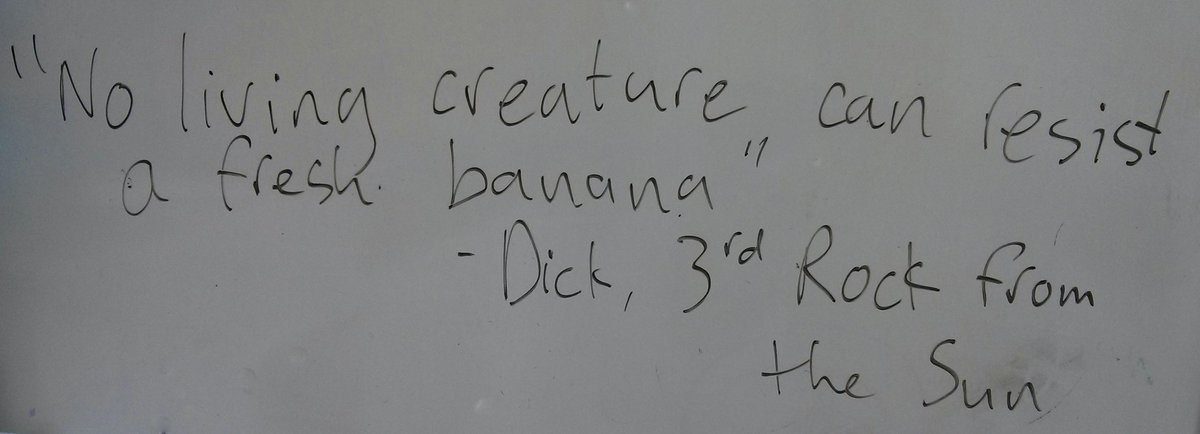 "No living creature can resist
a fresh banana"
- Dick, 3rd Rock from
the Sun